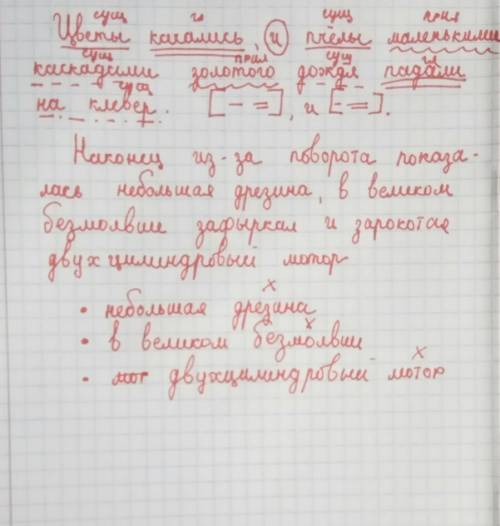 сущ гл сущ прил
Цветы качались, и пчёлы маленькими
сущ прил сущ гл
каскадами золотого дождя падали
сущ
на клевер. [- =], и [- =].
Наконец из-за поворота показа-
лась небольшая дрезина, в великом
безмолвии зафыркал и зарокотал
двухцилиндровый мотор
х
• небольшая дрезина
х
• в великом безмолвии
х
• двухцилиндровый мотор